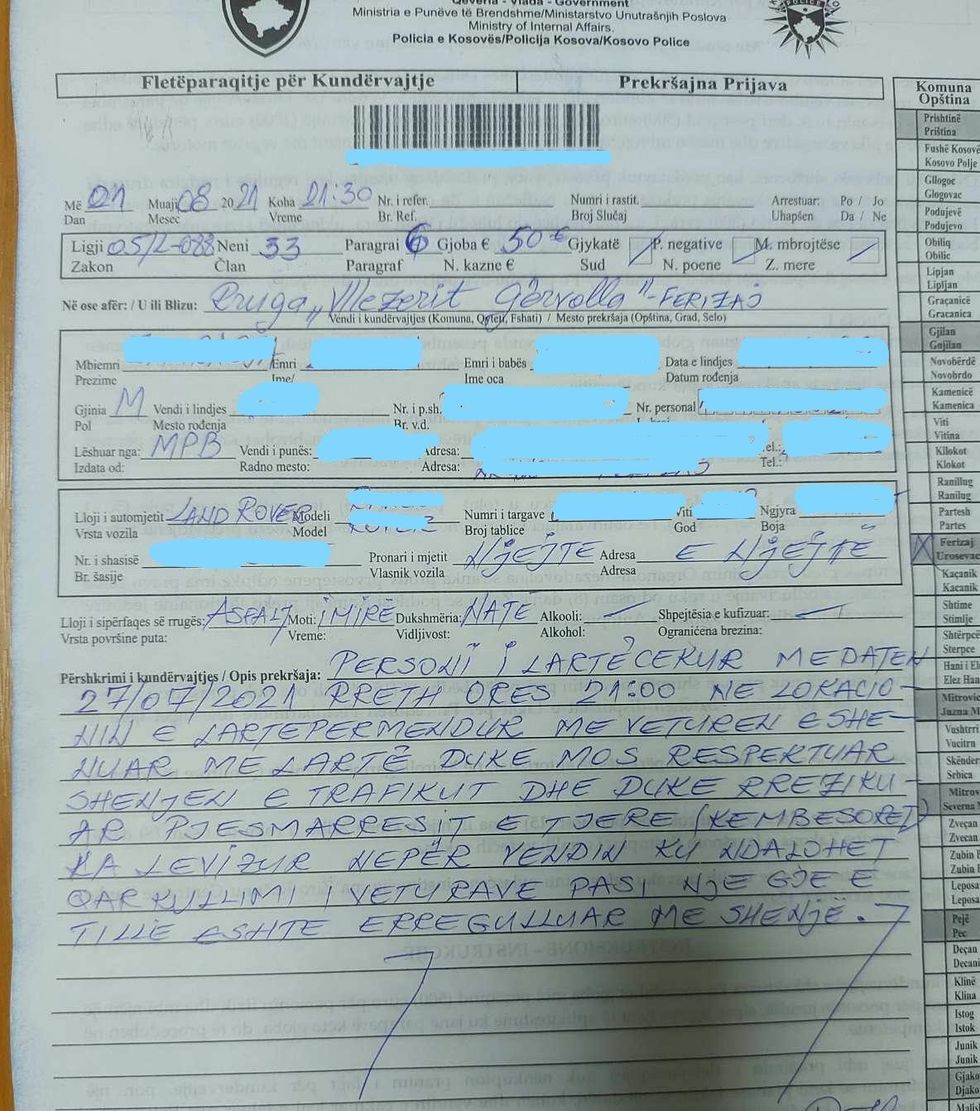 Qeveria - Vlada - Government
Ministria e Punëve të Brendshme/Ministarstvo Unutrašnjih Poslova
Ministry of Internal Affairs.
Policia e Kosovës/Policija Kosova/Kosovo Police
Fletëparaqitje për Kundërvajtje Prekršajna Prijava
Më 01 Muaji 08 2021 Koha 21:30 Nr. i refer. Numri i rastit. Arrestuar: Po / Jo
Dan Mesec Vreme Br. Ref. Broj Slučaj Uhapšen Da / Ne
Ligji 05/L-088 Neni 53 Paragrai 6 Gjoba € 50 € Gjykatë P. negative M. mbrojtëse
Zakon Član Paragraf N. kazne € Sud N. poene Z. mere
Në ose afër: / U ili Blizu: Rruga "Vlezerit Gërvolla" - FERIZAJ
Vendi i kundërvajtjes (Komuna, Qyteti, Fshati) / Mesto prekršaja (Opština, Grad, Selo)
Mbiemri Emri Emri i babës Data e lindjes
Prezime Ime/ Ime oca Datum rođenja
Gjinia M Vendi i lindjes Nr. i p.sh. Nr. personal
Pol Mesto rođenja Br. v.d.
Lëshuar nga: MPB Vendi i punës: Adresa: Tel.:
Izdata od: Radno mesto: Adresa: Tel.:
Lloji i automjetit LAND ROVER Modeli Numri i targave Viti Ngjyra
Vrsta vozila Model Broj tablice God Boja
Nr. i shasisë Pronari i mjetit NJEJTE Adresa E NJEJTË
Br. šasije Vlasnik vozila Adresa
Lloji i sipërfaqes së rrugës: ASFALT Moti: IMIRË Dukshmëria: NATE Alkooli: Shpejtësia e kufizuar:
Vrsta površine puta: Vreme: Vidljivost: Alkohol: Ograničena brezina:
Përshkrimi i kundërvajtjes / Opis prekršaja: PERSONI I LARTËCEKUR ME DATEN
27/07/2021 RRETH ORES 21:00 NE LOKACIO-
NIN E LARTEPERMENDUR ME VETUREN E SHE-
NUAR ME LARTË DUKE MOS RESPEKTUAR
SHENJEN E TRAFIKUT DHE DUKE RREZIKU-
AR PJESMARRESIT E TJERE (KEMBESORET)
KA LEVIZUR NEPËR VENDIN KU NDALOHET
QARKULLIMI I VETURAVE PASI NJE GJE E
TILLE ESHTE ERREGULLUAR ME SHENJË.
Komuna
Opština
Prishtinë
Priština
Fushë Kosovë
Kosovo Polje
Gllogoc
Glogovac
Podujevë
Podujevo
Obiliq
Obilic
Lipjan
Lipljan
Graçanicë
Gracanica
Gjilan
Gnjilan
Novobërdë
Novobrdo
Kamenicë
Kamenica
Viti
Vitina
Kllokot
Klokot
Ranillug
Ranilug
Partesh
Partes
Ferizaj
Urosevac
Kaçanik
Kacanik
Shtime
Stimlje
Shtërpcë
Sterpce
Hani i El
Elez Han
Mitrovic
Juzna M
Vushtrri
Vucitrn
Skënder
Srbica
Mitrov
Severna M
Zveçan
Zvecan
Zubin
Zubin
Leposa
Leposa
Pejë
Pec
Deçan
Decani
Klinë
Klina
Istog
Istok
Junik
Junik
Gjako